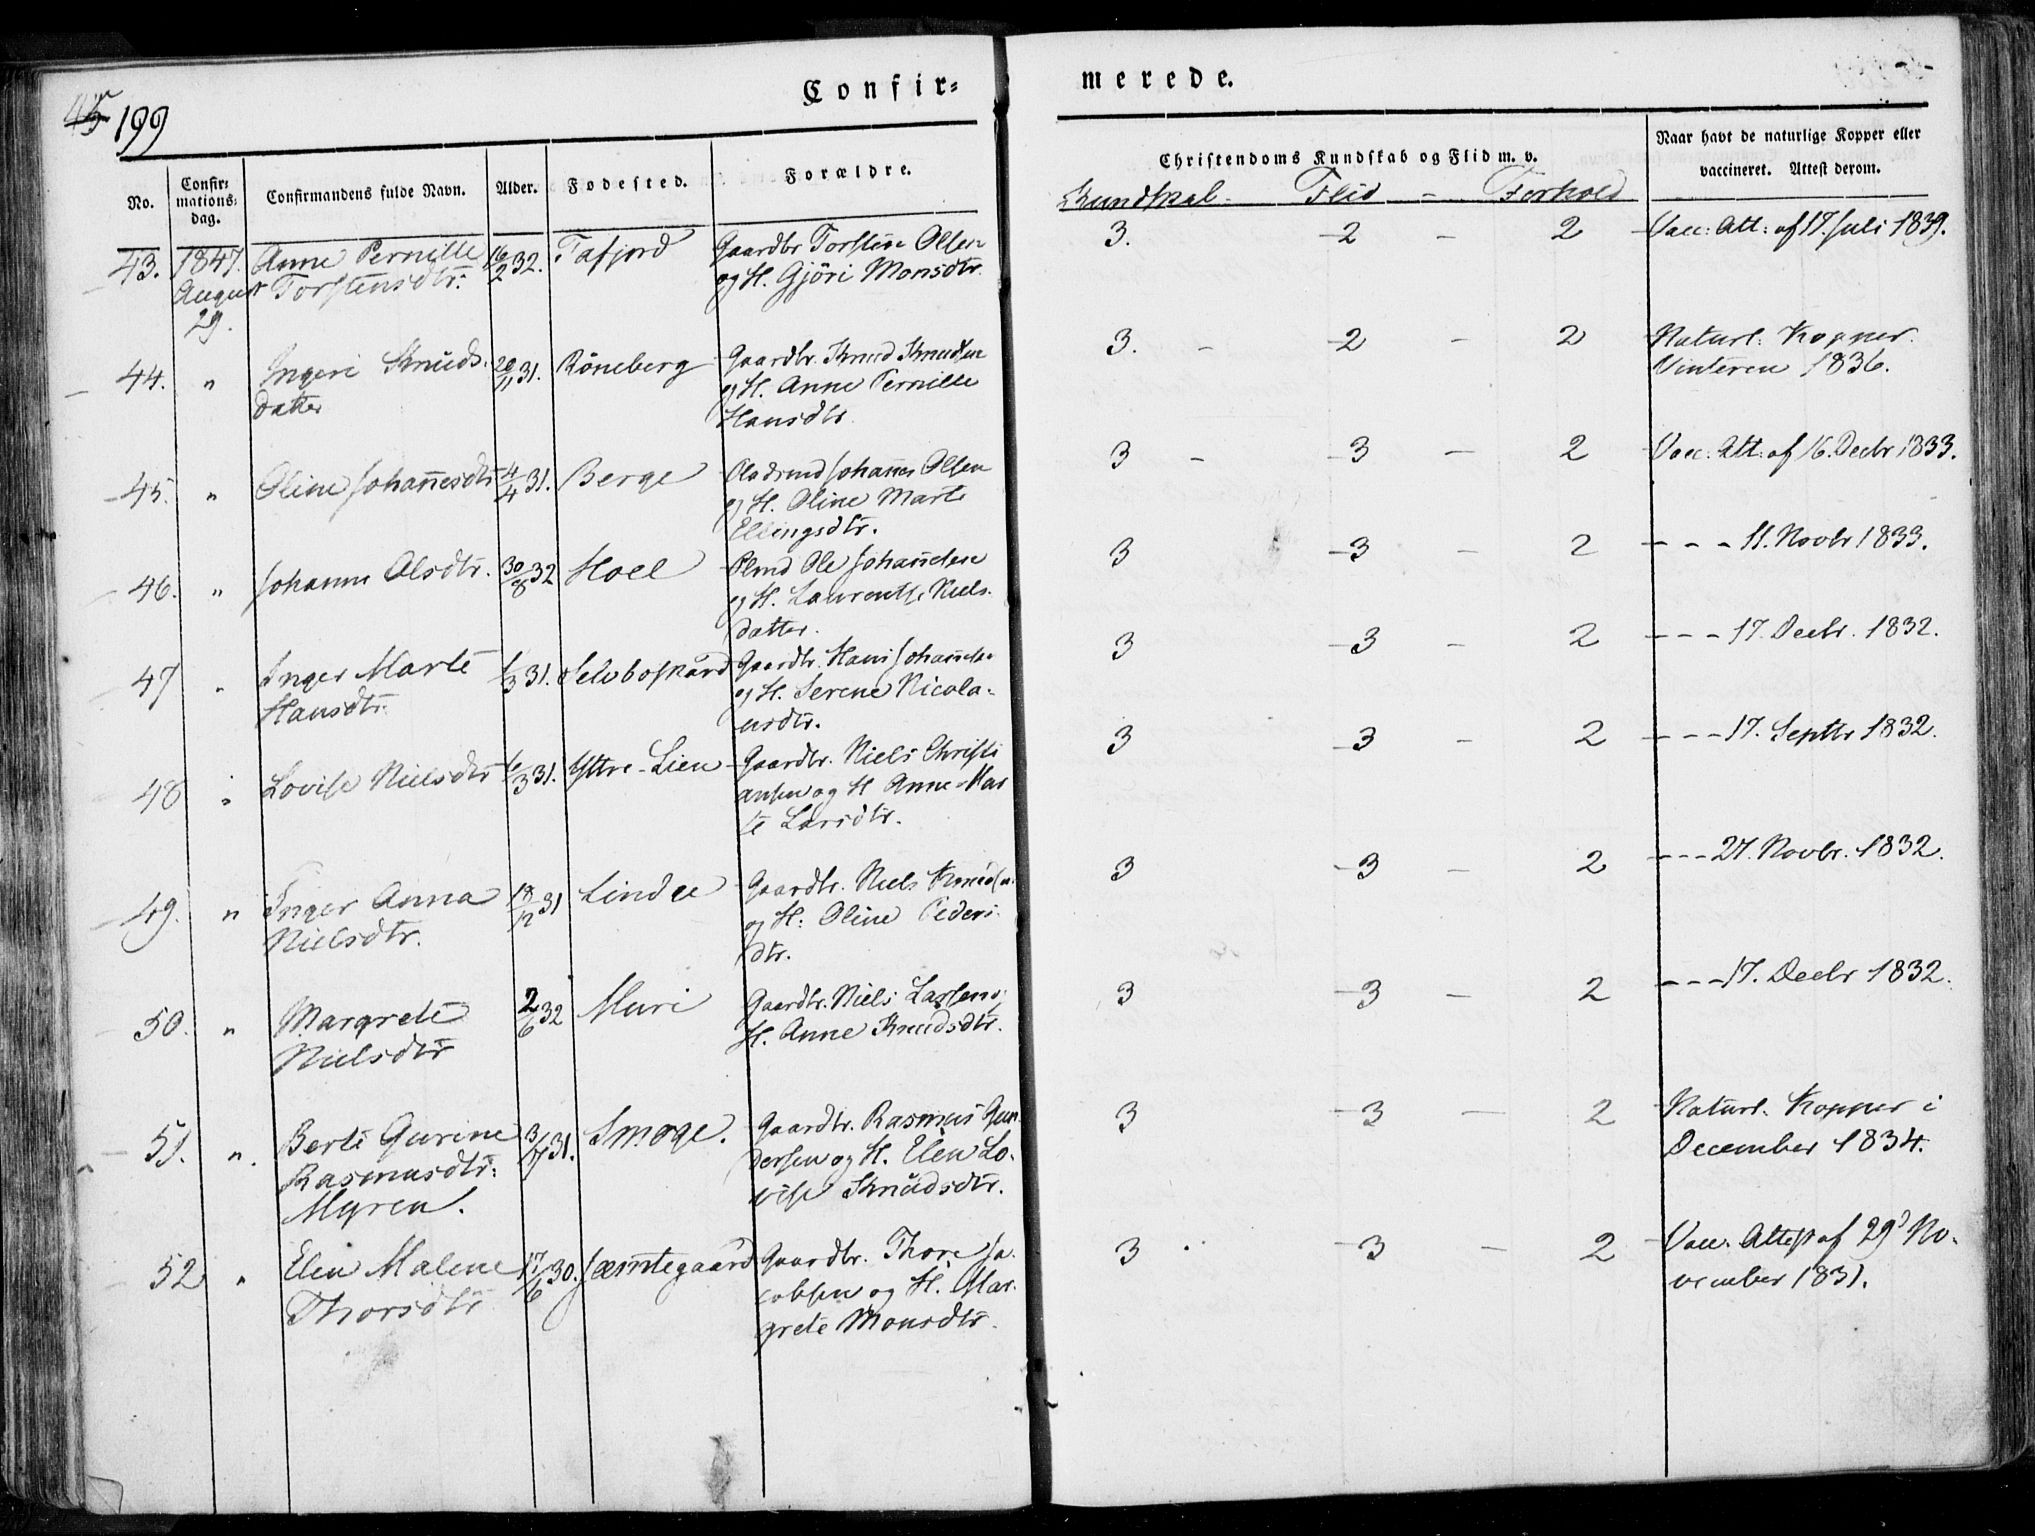 199
Confir=
merede.
No.
Confir=
mations=
dag.
Confirmandens fulde Navn.
Alder.
Fødested.
Forældre.
Christendoms Kundskab og Flid m. v.
Kundskab - Flid - Forhold
Naar havt de naturlige Kopper eller
vaccineret. Attest derom.
43. 1847. Anne Pernille 16/2 32. Tafjord Gaardbr Torsten Olsen 3. - 2 - 2 Vacc: Att: af 17. Juli 1839.
August Torstensdtr. og H. Gjöri Monsdtr.
29.
44. " Ingeri Knuds- 20/11 31. Röneberg Gaardbr. Knud Knudsen 3. - 2 - 2 Naturl: Kopper
datter og H. Anne Pernille Vinteren 1836.
Hansdtr
45. " Oline Johannesdtr 4/4 31. Berge Johannes Olsen 3 - 3 - 2 Vacc: Att: af 16. Decbr 1833.
og H. Oline Marte
Ellingsdtr.
46. " Johanne Olsdtr. 30/8 32 Hoel Ole Johannesen 3 - 3 - 2 - - - 11. Novbr 1833.
og H. Laurentse Niels-
datter.
47 " Inger Marte /3 31. Selvboskard Gaardbr. Hans Johannesen 3 - 3 - 2 - - - 17. Decbr. 1832.
Hansdtr. og H. Serene Nicola-
usdtr.
48 " Lovise Nielsdtr /3 31. Yttre-Lien Gaardbr. Niels Christi 3 - 3 - 2 - - - 17. Septbr 1832.
ansen og H Anne Mar
te Larsdtr.
49. " Inger Anna 18/12 31 Linda Gaardbr. Niels Knudsen 3 - 3 - 2 - - - 27. Novbr. 1832.
Nielsdtr. og H: Oline Peders-
dtr.
50. " Margrete 2/6 32 Muri Gaardbr. Niels Larsen og 3 - 3 - 2 - - - 17. Decbr 1832.
Nielsdtr H. Anne Knudsdtr.
51. " Berte Gurine 3/7 31. Smoge. Gaardbr. Rasmus Gun 3 - 3 - 2 Naturl. Kopper i
Rasmusdtr. dersen og H. Elen Lo- December 1834.
Myren. vise Knudsdtr.
52 " Elen Malene 17/6 30. Jæmtegaard Gaardbr. Thore Ja- 3 - 3 - 2 Vacc. Attest af 29d No-
Thorsdtr cobsen og H. Mar- vember 1831.
grete Monsdtr.